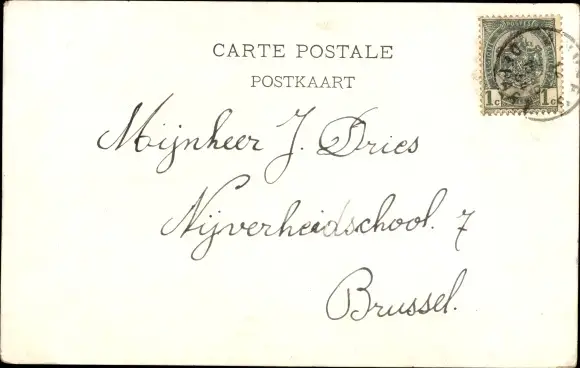 CARTE POSTALE
POSTKAART
1c 1c
Mijnheer J. Dries
Nijverheidschool. 7
Brussel.